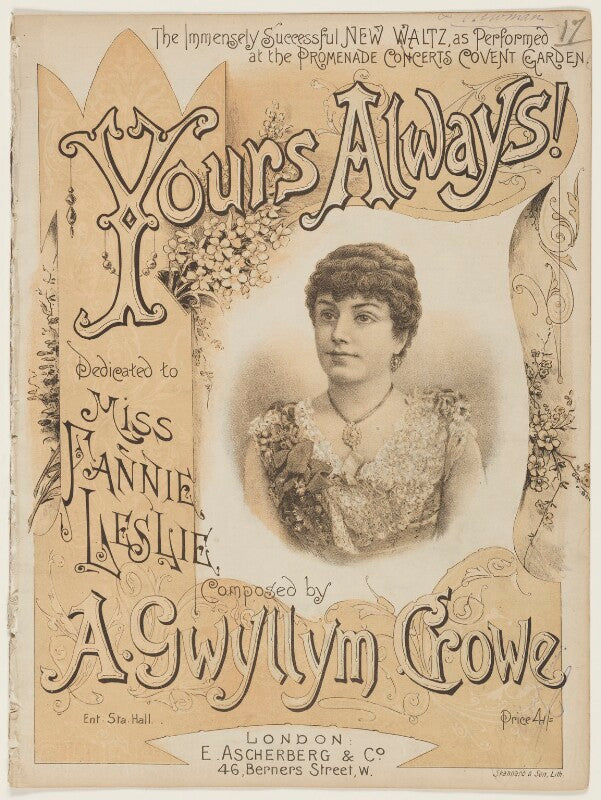 17
The Immensely Successful NEW WALTZ, as Performed
at the PROMENADE CONCERTS COVENT GARDEN.
Yours Always!
Dedicated to
MISS
FANNIE
LESLIE,
Composed by
A. Gwyllym Crowe
Ent. Sta. Hall.
Price 4/=
LONDON:
E. ASCHERBERG & Co
46, Berners Street, W.
Stannard & Son, Lith.